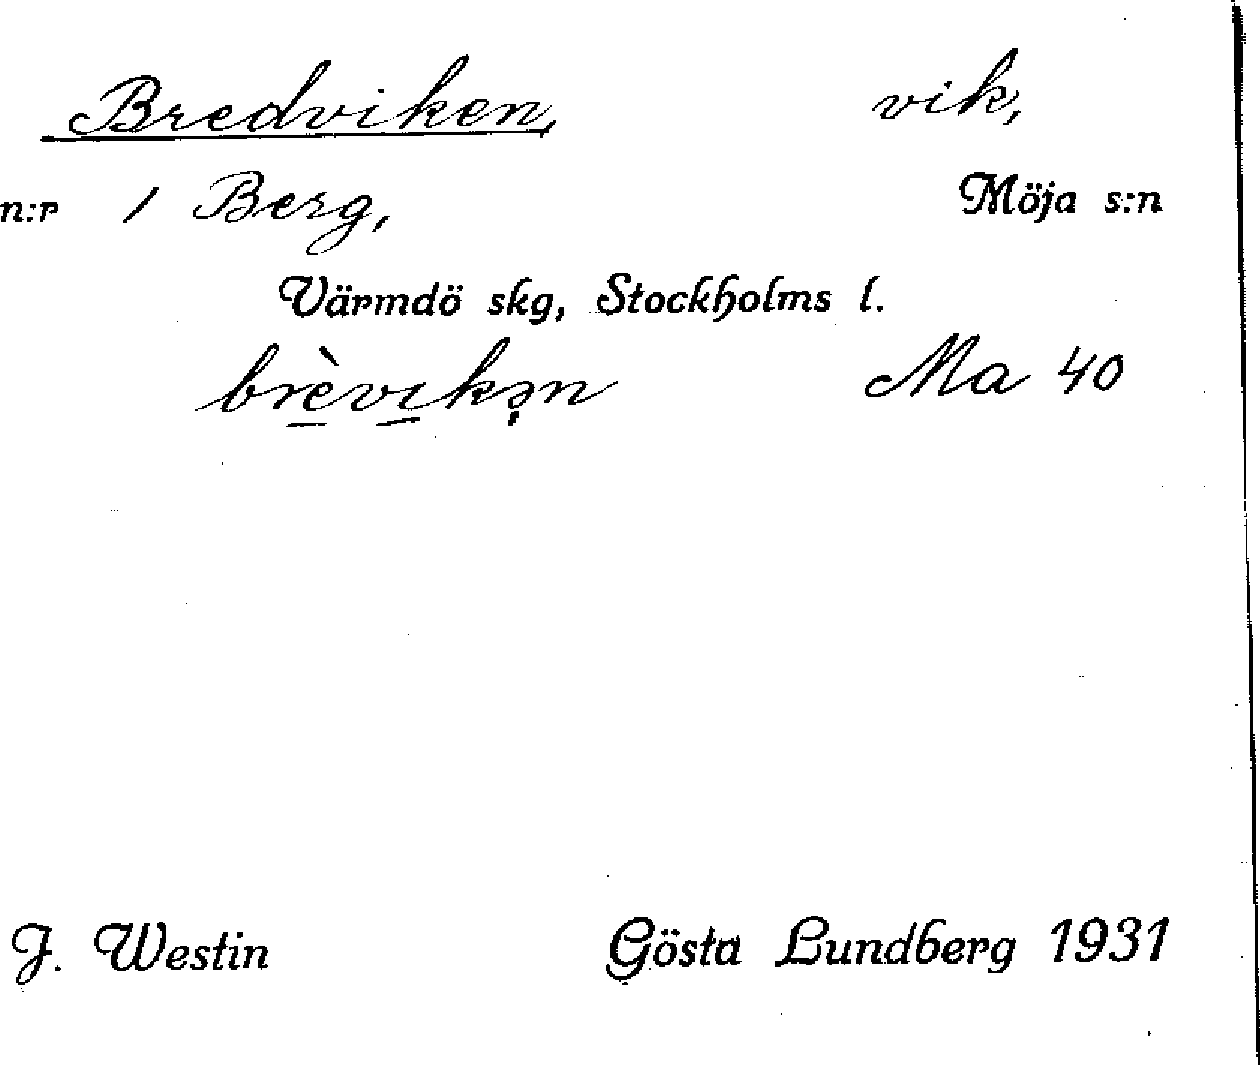 Bredviken, vik,
n:r 1 Berg, Möja s:n
Värmdö skg, Stockholms l.
brèvıkən Ma 40
J. Westin Gösta Lundberg 1931